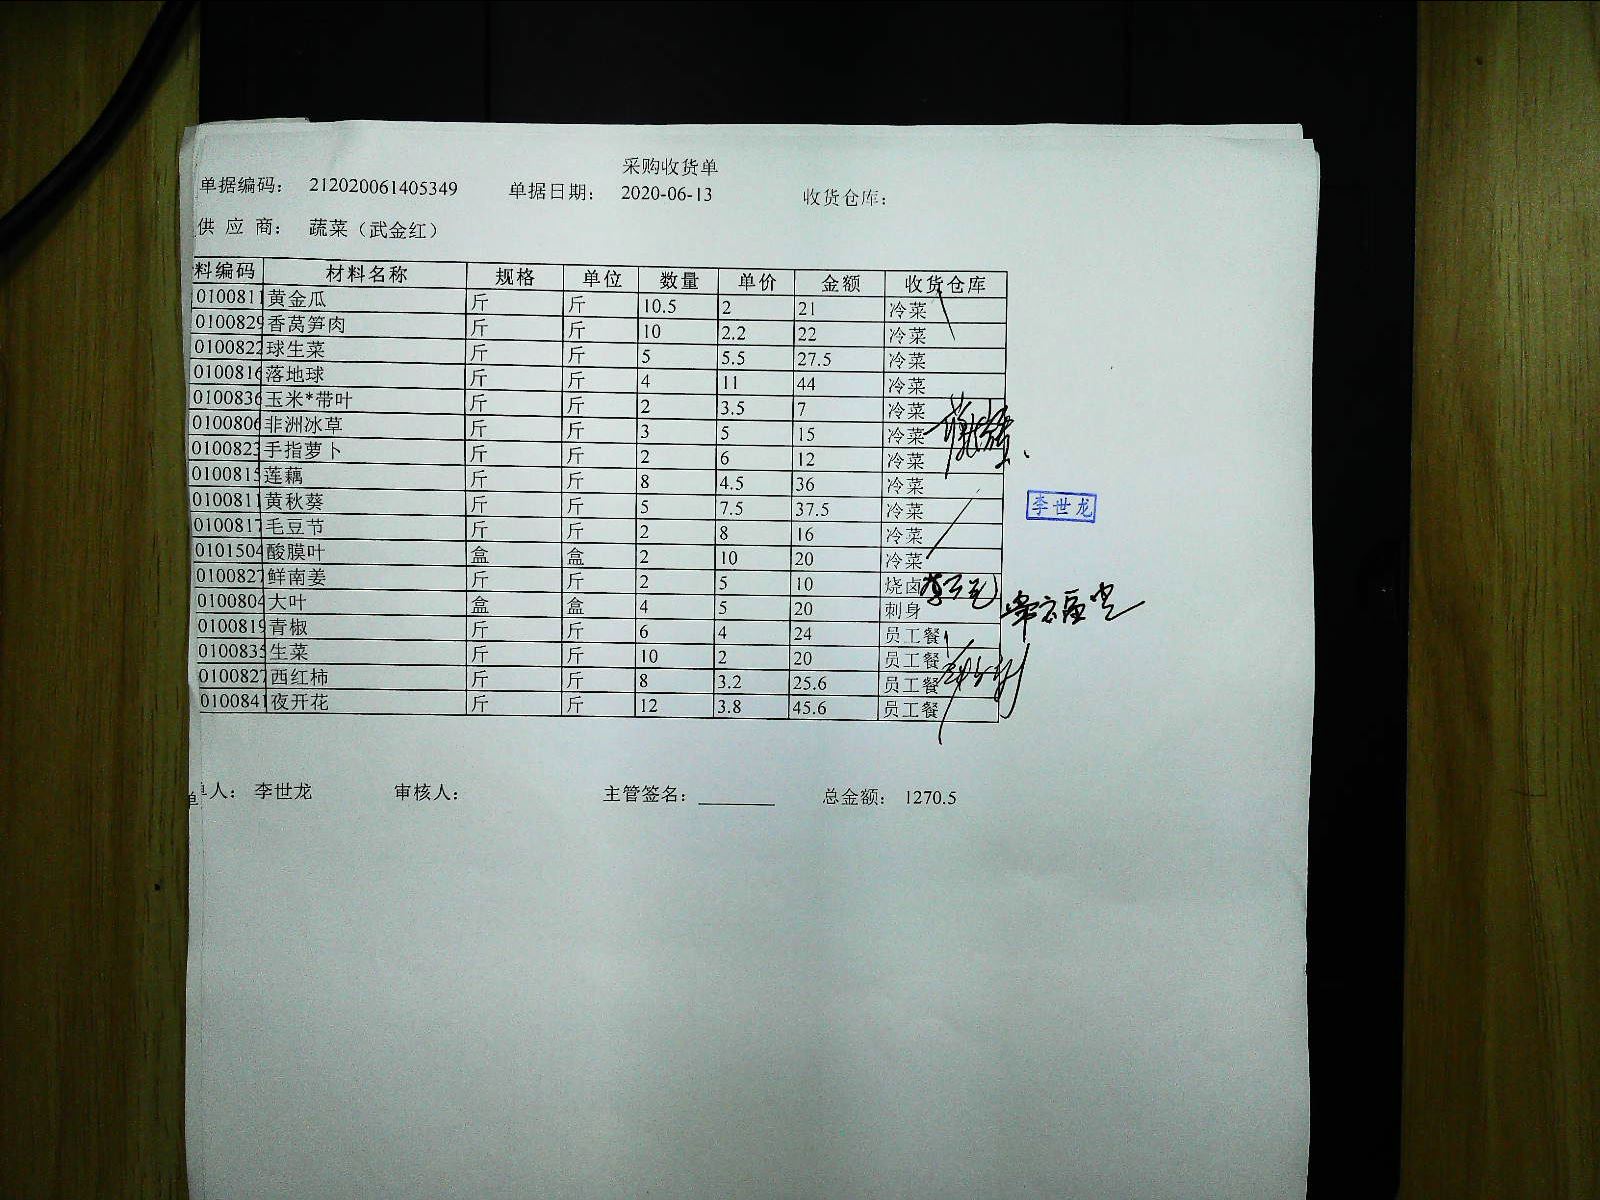 采购收货单
单据编码： 212020061405349 单据日期： 2020-06-13 收货仓库：
供 应 商： 蔬菜（武金红）
料编码 材料名称 规格 单位 数量 单价 金额 收货仓库
0100811 黄金瓜 斤 斤 10.5 2 21 冷菜
0100829 香莴笋肉 斤 斤 10 2.2 22 冷菜
0100822 球生菜 斤 斤 5 5.5 27.5 冷菜
0100816 落地球 斤 斤 4 11 44 冷菜
0100836 玉米*带叶 斤 斤 2 3.5 7 冷菜
0100806 非洲冰草 斤 斤 3 5 15 冷菜
0100823 手指萝卜 斤 斤 2 6 12 冷菜
0100815 莲藕 斤 斤 8 4.5 36 冷菜
0100811 黄秋葵 斤 斤 5 7.5 37.5 冷菜
李世龙
0100817 毛豆节 斤 斤 2 8 16 冷菜
0101504 酸膜叶 盒 盒 2 10 20 冷菜
0100827 鲜南姜 斤 斤 2 5 10 烧卤
0100804 大叶 盒 盒 4 5 20 刺身
0100819 青椒 斤 斤 6 4 24 员工餐
0100835 生菜 斤 斤 10 2 20 员工餐
0100827 西红柿 斤 斤 8 3.2 25.6 员工餐
0100841 夜开花 斤 斤 12 3.8 45.6 员工餐
单人： 李世龙 审核人： 主管签名： 总金额： 1270.5